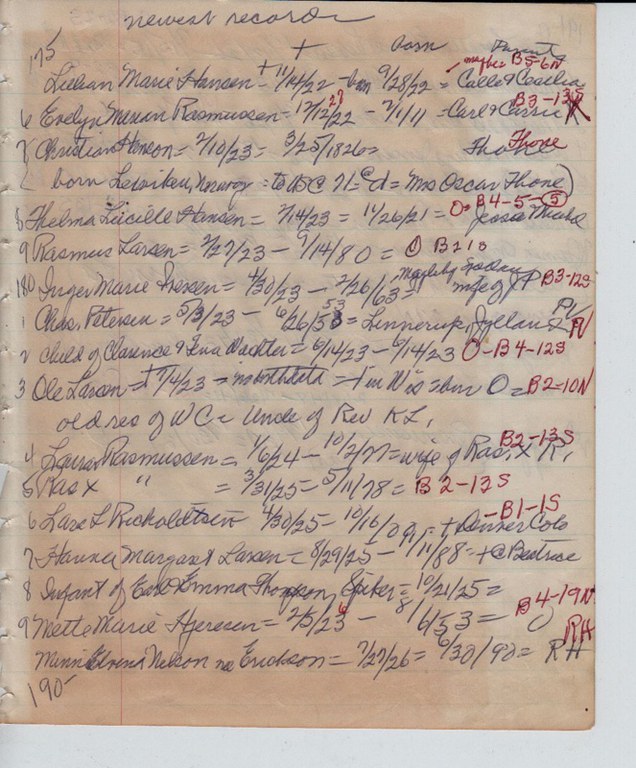 newest record
175 + born Parents
Lillian Marie Hansen + 11/14/22 - born 9/28/22 = Calle & Cecelia maybe B5-6N
6 Evelyn Marian Rasmussen = 12/12/22 27 - 2/1/11 = Carl & Carrie R B3-13S
7 Christian Henson = 2/10/23 = 3/25/1826 = Thone Thone
born Norway = to USC 71 = @ d = Mrs Oscar Thone)
8 Thelma Lucille Hansen = 2/14/23 = 11/26/21 = O = B4-5-(5) Jessie
9 Rasmus Larsen = 2/27/23 - 9/14/80 = O B2
180 Inger Marie = 4/30/23 - 2/26/63 = wife of JP B3-12S
1 Chris. Petersen = 5/3/23 - 6/26/53 53 = Linnerup, Jylland PV PV
2 child of Clarence & Eva Wachter = 6/14/23 - 6/14/23 O - B4-12S
3 Ole Larsen = + 7/4/23 = no birthdate = in Wis = bur O = B2-10N
old res of WC = Uncle of Rev KL,
4 Laura Rasmussen = 1/6/24 - 10/2/77 = wife of Ras. X R, B2-13S
5 Ras X " = 3/31/25 - 5/11/78 = B2-13S
6 Lars L 4/30/25 - 10/16/ = + Denver Colo - B1-1S
7 Hanna Margaret Larsen = 8/29/25 - 1/11/88 = + @ Beatrice
8 Infant of Earl & Emma Thompson, Spiker = 10/21/25 =
9 Mette Marie Hjeresen = 2/5/23 6 - 8/6/53 = O B4-19N
Minni Nelson ne Erickson = 7/27/26 = 6/30/90 = RH RH
190-